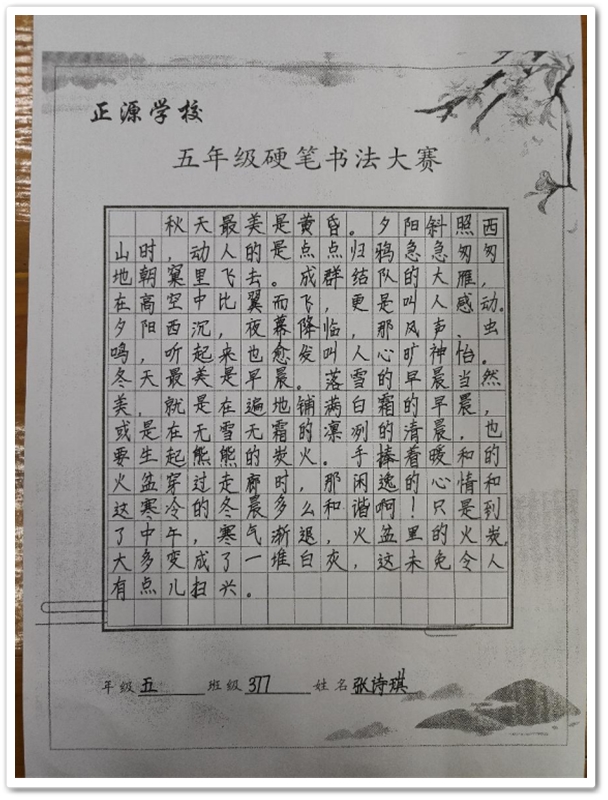 正源学校
五年级硬笔书法大赛
秋天最美是黄昏。夕阳斜照西
山时，动人的是点点归鸦急急匆匆
地朝窠里飞去。成群结队的大雁，
在高空中比翼而飞，更是叫人感动。
夕阳西沉，夜幕降临，那风声、虫
鸣，听起来也愈发叫人心旷神怡。
冬天最美是早晨。落雪的早晨当然
美，就是在遍地铺满白霜的早晨，
或是在无雪无霜的凛冽的清晨，也
要生起熊熊的炭火。手捧着暖和的
火盆穿过走廊时，那闲逸的心情和
这寒冷的冬晨多么和谐啊！只是到
了中午，寒气渐退，火盆里的火炭，
大多变成了一堆白灰，这未免令人
有点儿扫兴。
年级 五 班级 377 姓名 张诗琪